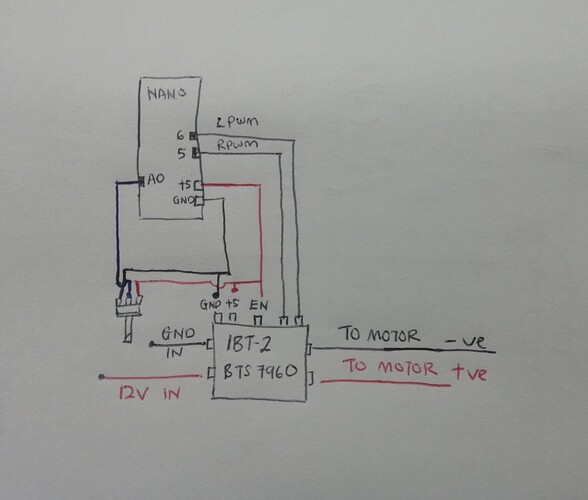 NANO
6
LPWM
5
RPWM
A0
+5
GND
GND +5 EN
GND
IN
IBT-2
BTS 7960
12V IN
TO MOTOR -ve
TO MOTOR +ve